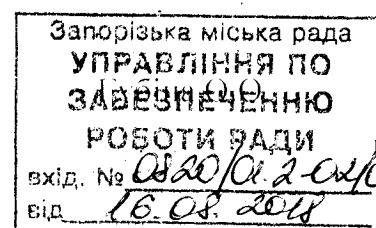 Запорізька міська рада
УПРАВЛІННЯ ПО
ЗАБЕЗПЕЧЕННЮ
РОБОТИ РАДИ
вхід. № 0820/01.2-02/0
від 16.08.2018